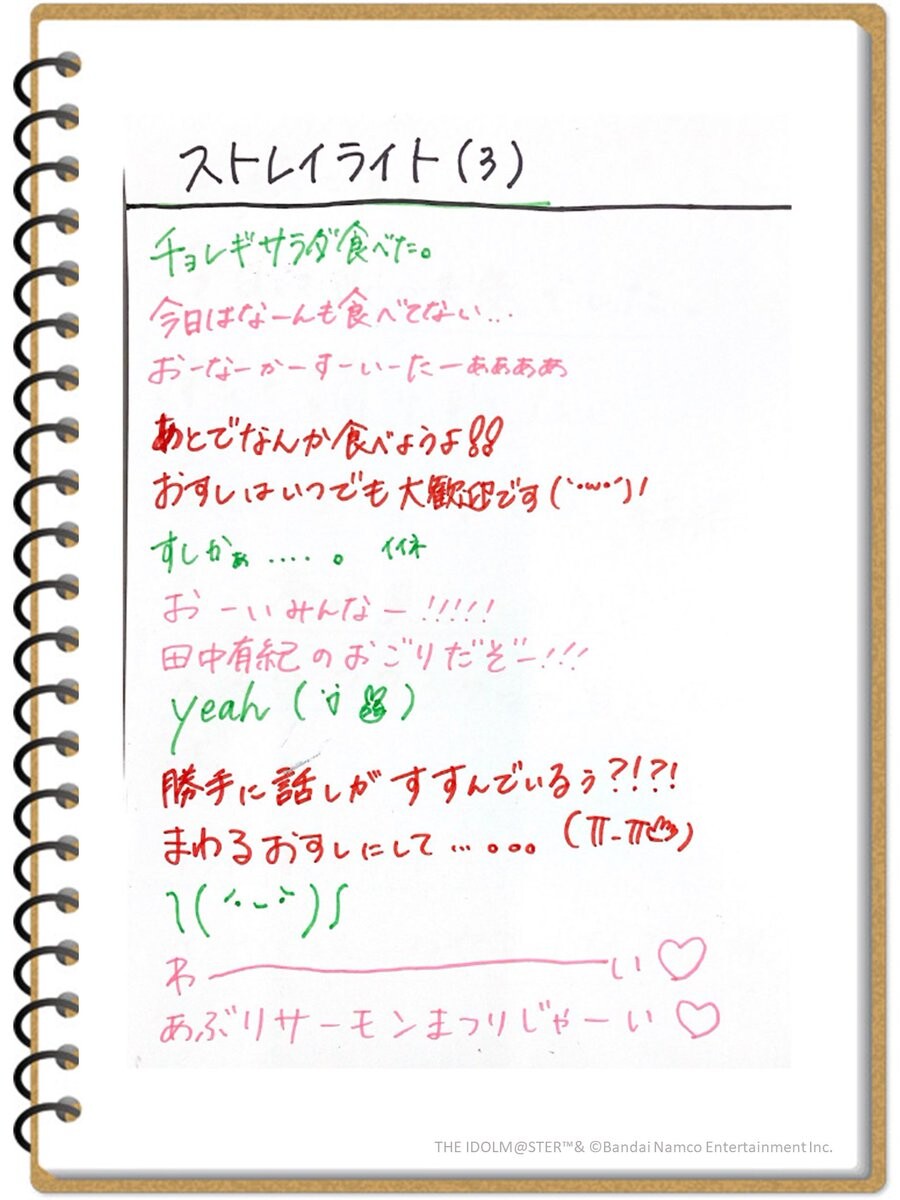 ストレイライト(3)
チョレギサラダ食べた。
今日はなーんも食べてない...
おーなーかーすーいーたーぁぁぁぁ
あとでなんか食べようよ!!
おすしはいつでも大歓迎です(`・ω・´)!
すしかぁ ..... 。 イイネ
おーいみんなー!!!!!
田中有紀のおごりだぞー!!!
yeah (
勝手に話しがすすんでいるぅ?!?!
まわるおすしにして...。。。(TT-TT)
ʅ(´・‿・`)ʃ
わーーーーーい♡
あぶりサーモンまつりじゃーい♡
THE IDOLM@STER™& ©Bandai Namco Entertainment Inc.